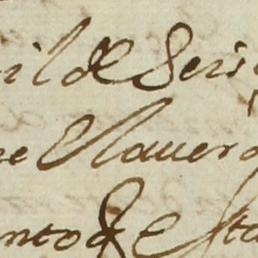 il de Seis
e Clauero
nto de Esta